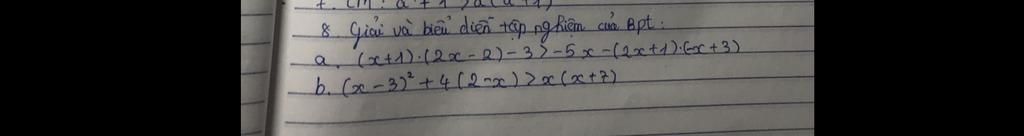 8. Giải và biểu diễn tập nghiệm của Bpt:
a. (x+1).(2x-2)-3>-5x-(2x+1).(-x+3)
b. (x-3)²+4(2-x)>x(x+7)